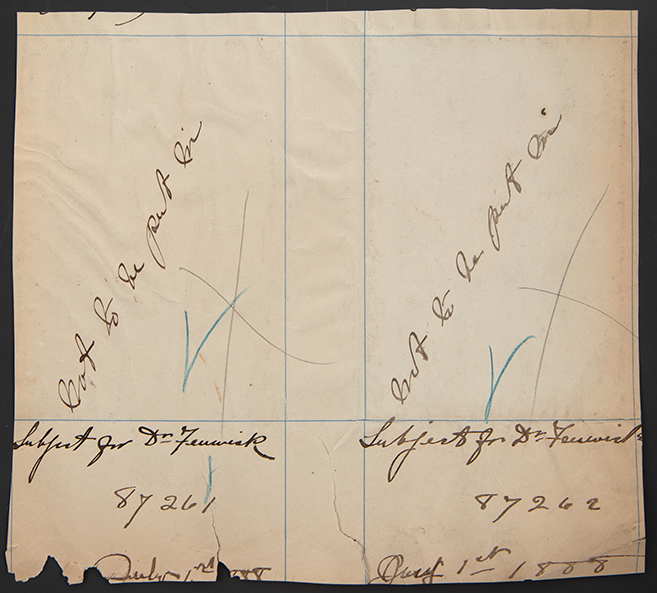 not to be put in
Subject for Dr Fenwick
87261
July 1st 1888
not to be put in
Subject for Dr Fenwick
87262
1st 1888